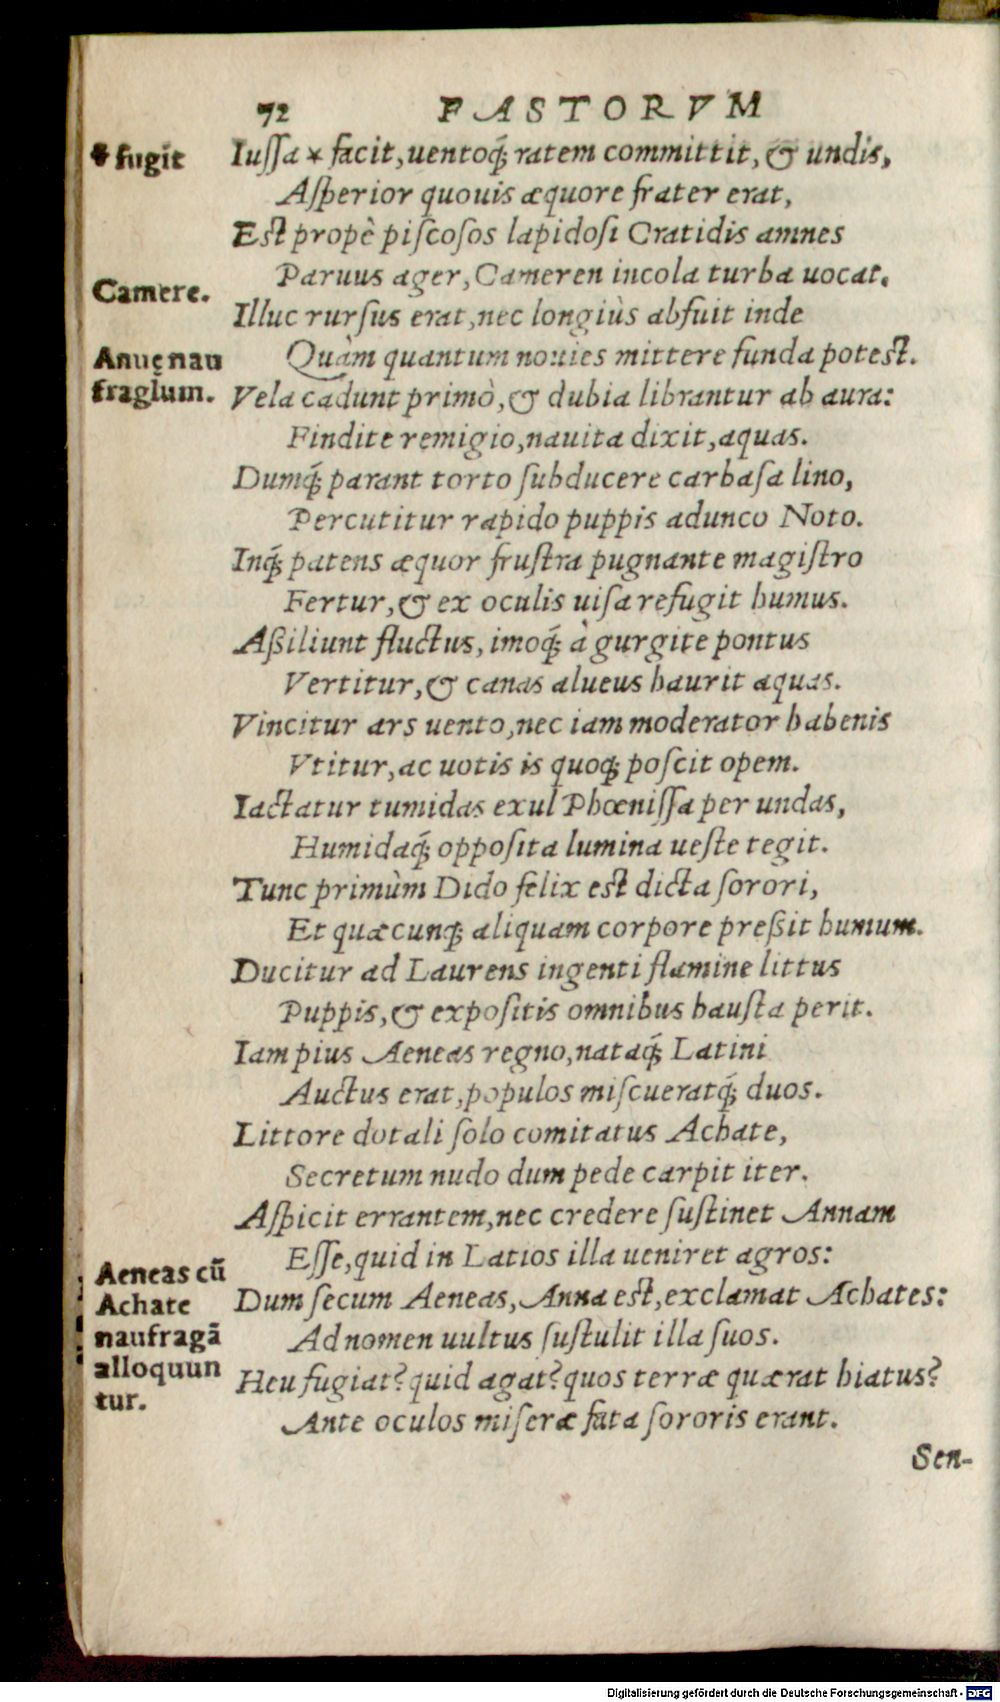 72 FASTORVM
* fugit
Iuſſa * facit, uentoq́; ratem committit, & undis,
Aſperior quouis æquore frater erat,
Eſt propè piſcoſos lapidoſi Cratidis amnes
Camere.
Paruus ager, Cameren incola turba uocat.
Illuc rurſus erat, nec longiùs abfuit inde
Anuę nau
fragium.
Quàm quantum nouies mittere funda poteſt.
Vela cadunt primò, & dubia librantur ab aura:
Findite remigio, nauita dixit, aquas.
Dumq́; parant torto ſubducere carbaſa lino,
Percutitur rapido puppis adunco Noto.
Inq́; patens æquor fruſtra pugnante magiſtro
Fertur, & ex oculis uiſa refugit humus.
Aßiliunt fluctus, imoq́; à gurgite pontus
Vertitur, & canas alueus haurit aquas.
Vincitur ars uento, nec iam moderator habenis
Vtitur, ac uotis is quoq; poſcit opem.
Iactatur tumidas exul Phœniſſa per undas,
Humidaq́; oppoſita lumina ueſte tegit.
Tunc primùm Dido felix eſt dicta ſorori,
Et quæcunq; aliquam corpore preßit humum.
Ducitur ad Laurens ingenti flamine littus
Puppis, & expoſitis omnibus hauſta perit.
Iam pius Aeneas regno, nataq́; Latini
Auctus erat, populos miſcueratq́; duos.
Littore dotali ſolo comitatus Achate,
Secretum nudo dum pede carpit iter.
Aſpicit errantem, nec credere ſuſtinet Annam
Eſſe, quid in Latios illa ueniret agros:
Aeneas cū
Achate
naufragā
alloquun
tur.
Dum ſecum Aeneas, Anna eſt, exclamat Achates:
Ad nomen uultus ſuſtulit illa ſuos.
Heu fugiat? quid agat? quos terræ quærat hiatus?
Ante oculos miſeræ fata ſororis erant.
Sen-
Digitalisierung gefördert durch die Deutsche Forschungsgemeinschaft - DFG